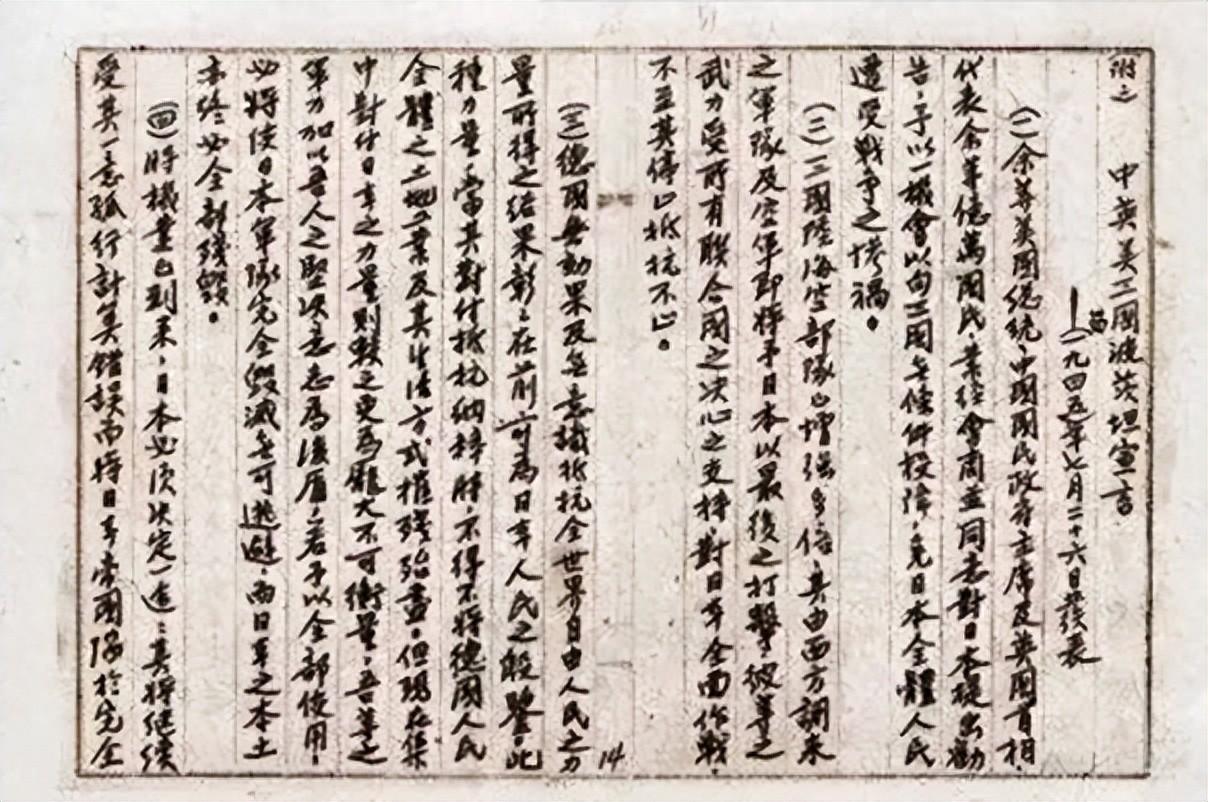 附之 中英美三國波茨坦宣言
一九四五年七月二十六日發表
(一)余等美國總統、中國國民政府主席及英國首相
代表余等億萬國民,業經會商並同意對日本提出勸
告,予以一機會以向三國無條件投降,免日本全體人民
遭受戰爭之慘禍。
(二)三國陸海空部隊已增強多倍,其由西方調來
之軍隊及空軍即將予日本以最後之打擊,彼等之
武力受所有聯合國之决心之支持,對日本全面作戰,
不至其停止抵抗不止。
14
(三)德國無動果及無意識抵抗全世界自由人民之力
量所得之結果彰彰在前,可為日本人民之殷鑒。此
種力量,當其對付抵抗納粹時,不得不將德國人民
全體之土地工業及其生活方式摧殘殆盡。但現在集
中對付日本之力量則較之更為龐大不可衡量。吾等之
軍力加以吾人之堅决意志為後盾,若予以全部使用,
必將使日本軍隊完全毀滅無可逃避,而日本之本土
亦終必全部殘毀。
(四)時機業已到來,日本必須决定一途:其將繼續
受其一意孤行計算錯誤而將日本帝國陷於完全